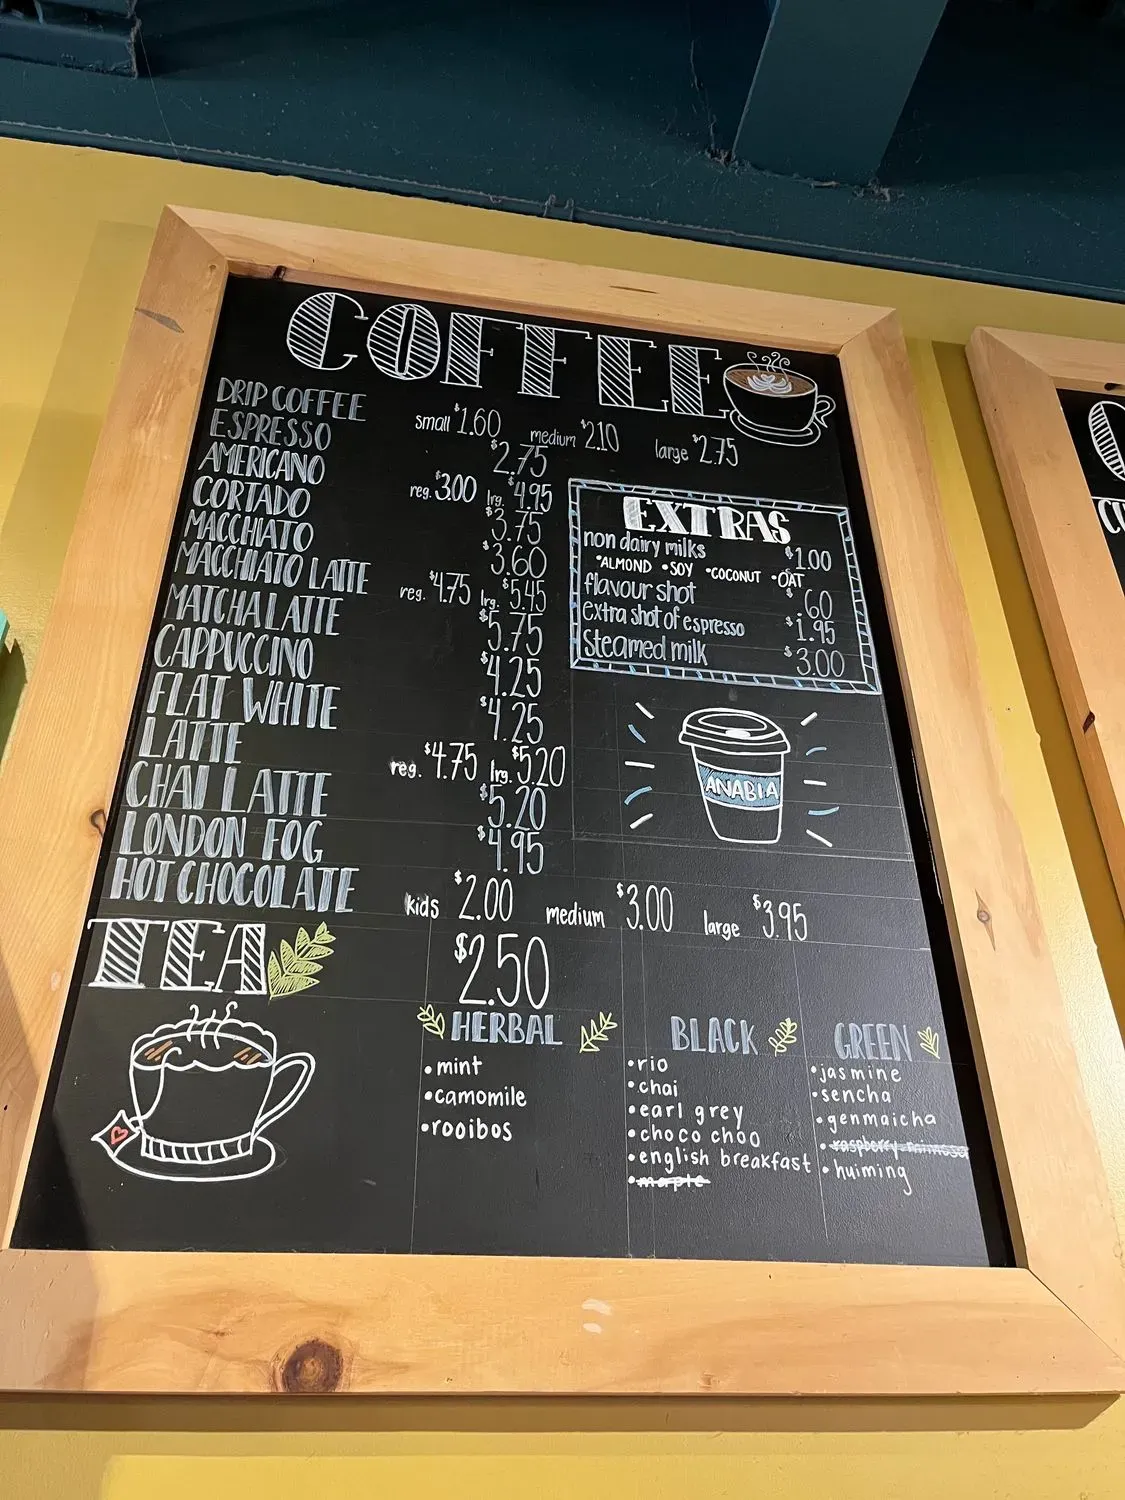 COFFEE
DRIP COFFEE small $1.60 medium $2.10 large $2.75
ESPRESSO $2.75
AMERICANO reg. $3.00 lrg. $4.95
CORTADO $3.75
MACCHIATO $3.60
MACCHIATO LATTE reg. $4.75 lrg. $5.45
MATCHA LATTE $5.75
CAPPUCCINO $4.25
FLAT WHITE $4.25
LATTE reg. $4.75 lrg. $5.20
CHAI LATTE $5.20
LONDON FOG $4.95
HOT CHOCOLATE kids $2.00 medium $3.00 large $3.95
EXTRAS
non dairy milks $1.00
•ALMOND •SOY •COCONUT •OAT
flavour shot $.60
extra shot of espresso $1.95
Steamed milk $3.00
ANABIA
TEA $2.50
HERBAL
•mint
•camomile
•rooibos
BLACK
•rio
•chai
•earl grey
•choco choo
•english breakfast
•maple
GREEN
•jasmine
•sencha
•genmaicha
•raspberry mimosa
•huiming